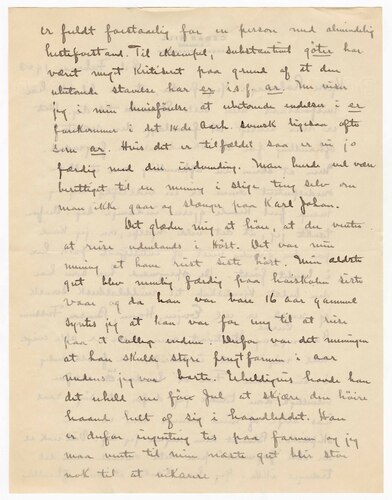 er fuldt forstaaelig for en person med almindelig
hesteforstand. Til eksempel, substantivet goter har
vært meget kritisert paa grund af at den
ubetonte stavelse har er isf. ar. Nu viser
jeg i min at ubetonte endelser i er
forekommer i det 14de Aarh. svensk ligesaa ofte
som ar. Hvis det er tilfældet saa er vi jo
færdig med den indvending. Man burde vel være
berettiget til en mening i slige ting selv om
man ikke gaar og slænger paa Karl Johan.
Det glæder mig at høre, at du venter
at reise udenlands i Høst. Det var min
mening at ham reist siste høst. Min ældste
gut blev nemlig færdig paa høiskolen siste
vaar og da han var bare 16 aar gammel
syntes jeg at han var for ung til at reise
paa 't College endnu. Derfor var det meningen
at han skulde styre frugtfarmen i aar
medens jeg var borte. Uheldigvis havde han
det uheld nu före Jul at skjære den höire
haand helt af sig i haandleddet. Han
er derfor ingenting tes paa farmen og jeg
maa vente til min næste gut blir stor
nok til at vikariere.